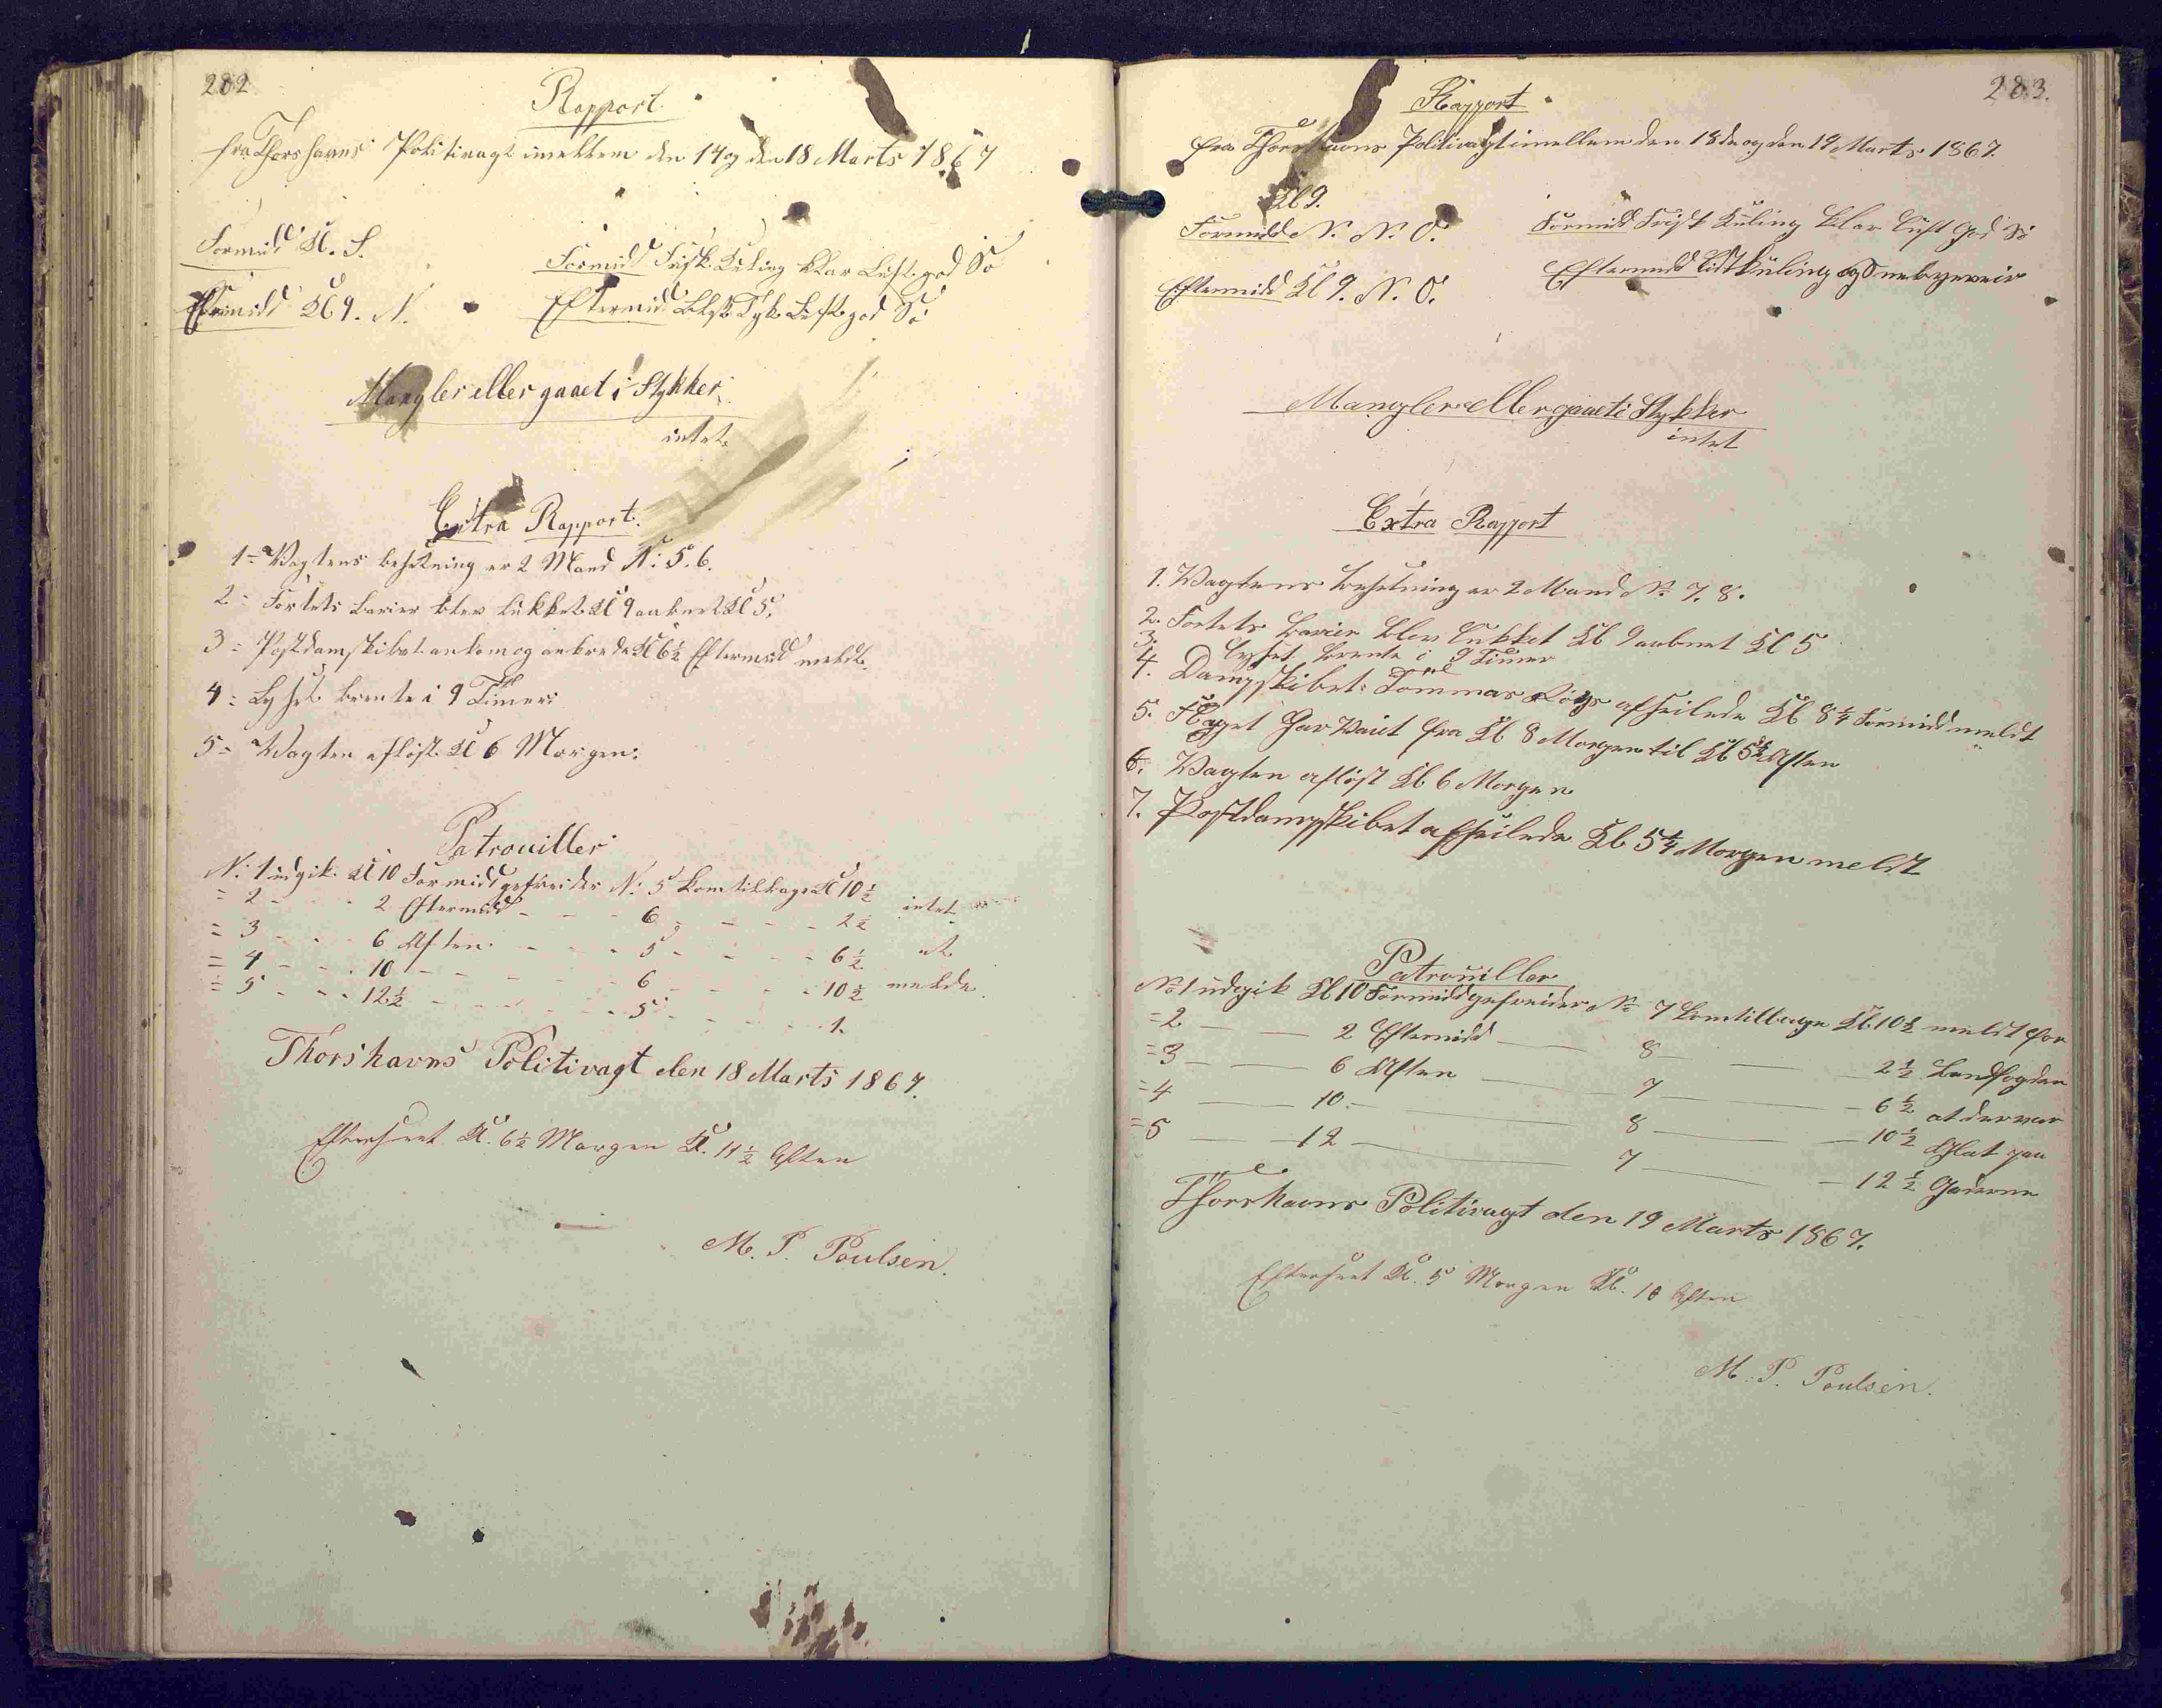 282
Rapport.
fra Thorshavns Politivagt imellem den 17 og den 18 Marts 1867
Formid Kl. 9.
Formidd Frisk Kuling klar Luft god Sö
Eftermidd Kl 9. N.
Eftermidd Tyk Luft god Sö
Mangler eller gaaet i Stykker
intet
Extra Rapport.
1= Vagtens besetning er 2 Mand N: 5. 6.
2= Fortets Barier blev lukket Kl 9 aabnet Kl 5.
3= Postdamskibet ankom og ankrede Kl 6½ Eftermidd meldt.
4= Lyset brente i 9 Timer:
5= Vagten aflöst Kl 6 Morgen:
Patrouiller
N: 1 udgik Kl 10 Formidd gefreider N: 5 kom tilbage Kl 10½
= 2 - - - 2 Eftermidd - - - 6 - - - - 2½ intet
= 3 - - - 6 Aften - - - 5 - - - - 6½ at
= 4 - - - 10 - - - - 6 - - - - 10½ melde
= 5 - - - 12½ - - - - 5 - - - - 1.
Thorshavns Politivagt den 18 Marts 1867.
Efterseet Kl. 6½ Morgen Kl. 11½ Aften
M. P. Poulsen.
283.
Rapport
fra Thorshavns Politivagt imellem den 18de og den 19 Marts 1867.
Kl 9.
Formidd N. N. O.
Formidd Frisk Kuling klar Luft god Sö
Eftermidd Kl 9. N. O.
Eftermidd Lidt kuling og Snebygeveir
Mangler eller gaaet i Stykker
intet
Extra Rapport
1. Vagtens besetning er 2 Mand No 7. 8.
2. Fortets Barier blev lukket Kl 9 aabnet Kl 5
3. Lyset brente i 9 Timer
4. Dampskibet: Tömmas Röys afseilede Kl 8¼ Formidd meldt
5. Flaget har vaiet fra Kl 8 Morgen til Kl 5½ Aften "
6. Vagten aflöst Kl 6 Morgen
7. Postdampskibet afseilede Kl 5¼ Morgen meldt
Patrouiller
No 1 udgik Kl 10 Formidd gefreider No 7 kom tilbage Kl. 10½ meldt for
=2 — — 2 Eftermidd — — 8 — — 2½ Landfogden
=3 — — 6 Aften — — 7 — — 6½ at der var
=4 — — 10 — — 8 — — 10½ Glat paa
=5 — — 12 — — 7 — — 12½ Gaderne
Thorshavns Politivagt den 19 Marts 1867.
Efterseet Kl. 5 Morgen Kl. 10 Aften
M. P. Poulsen.